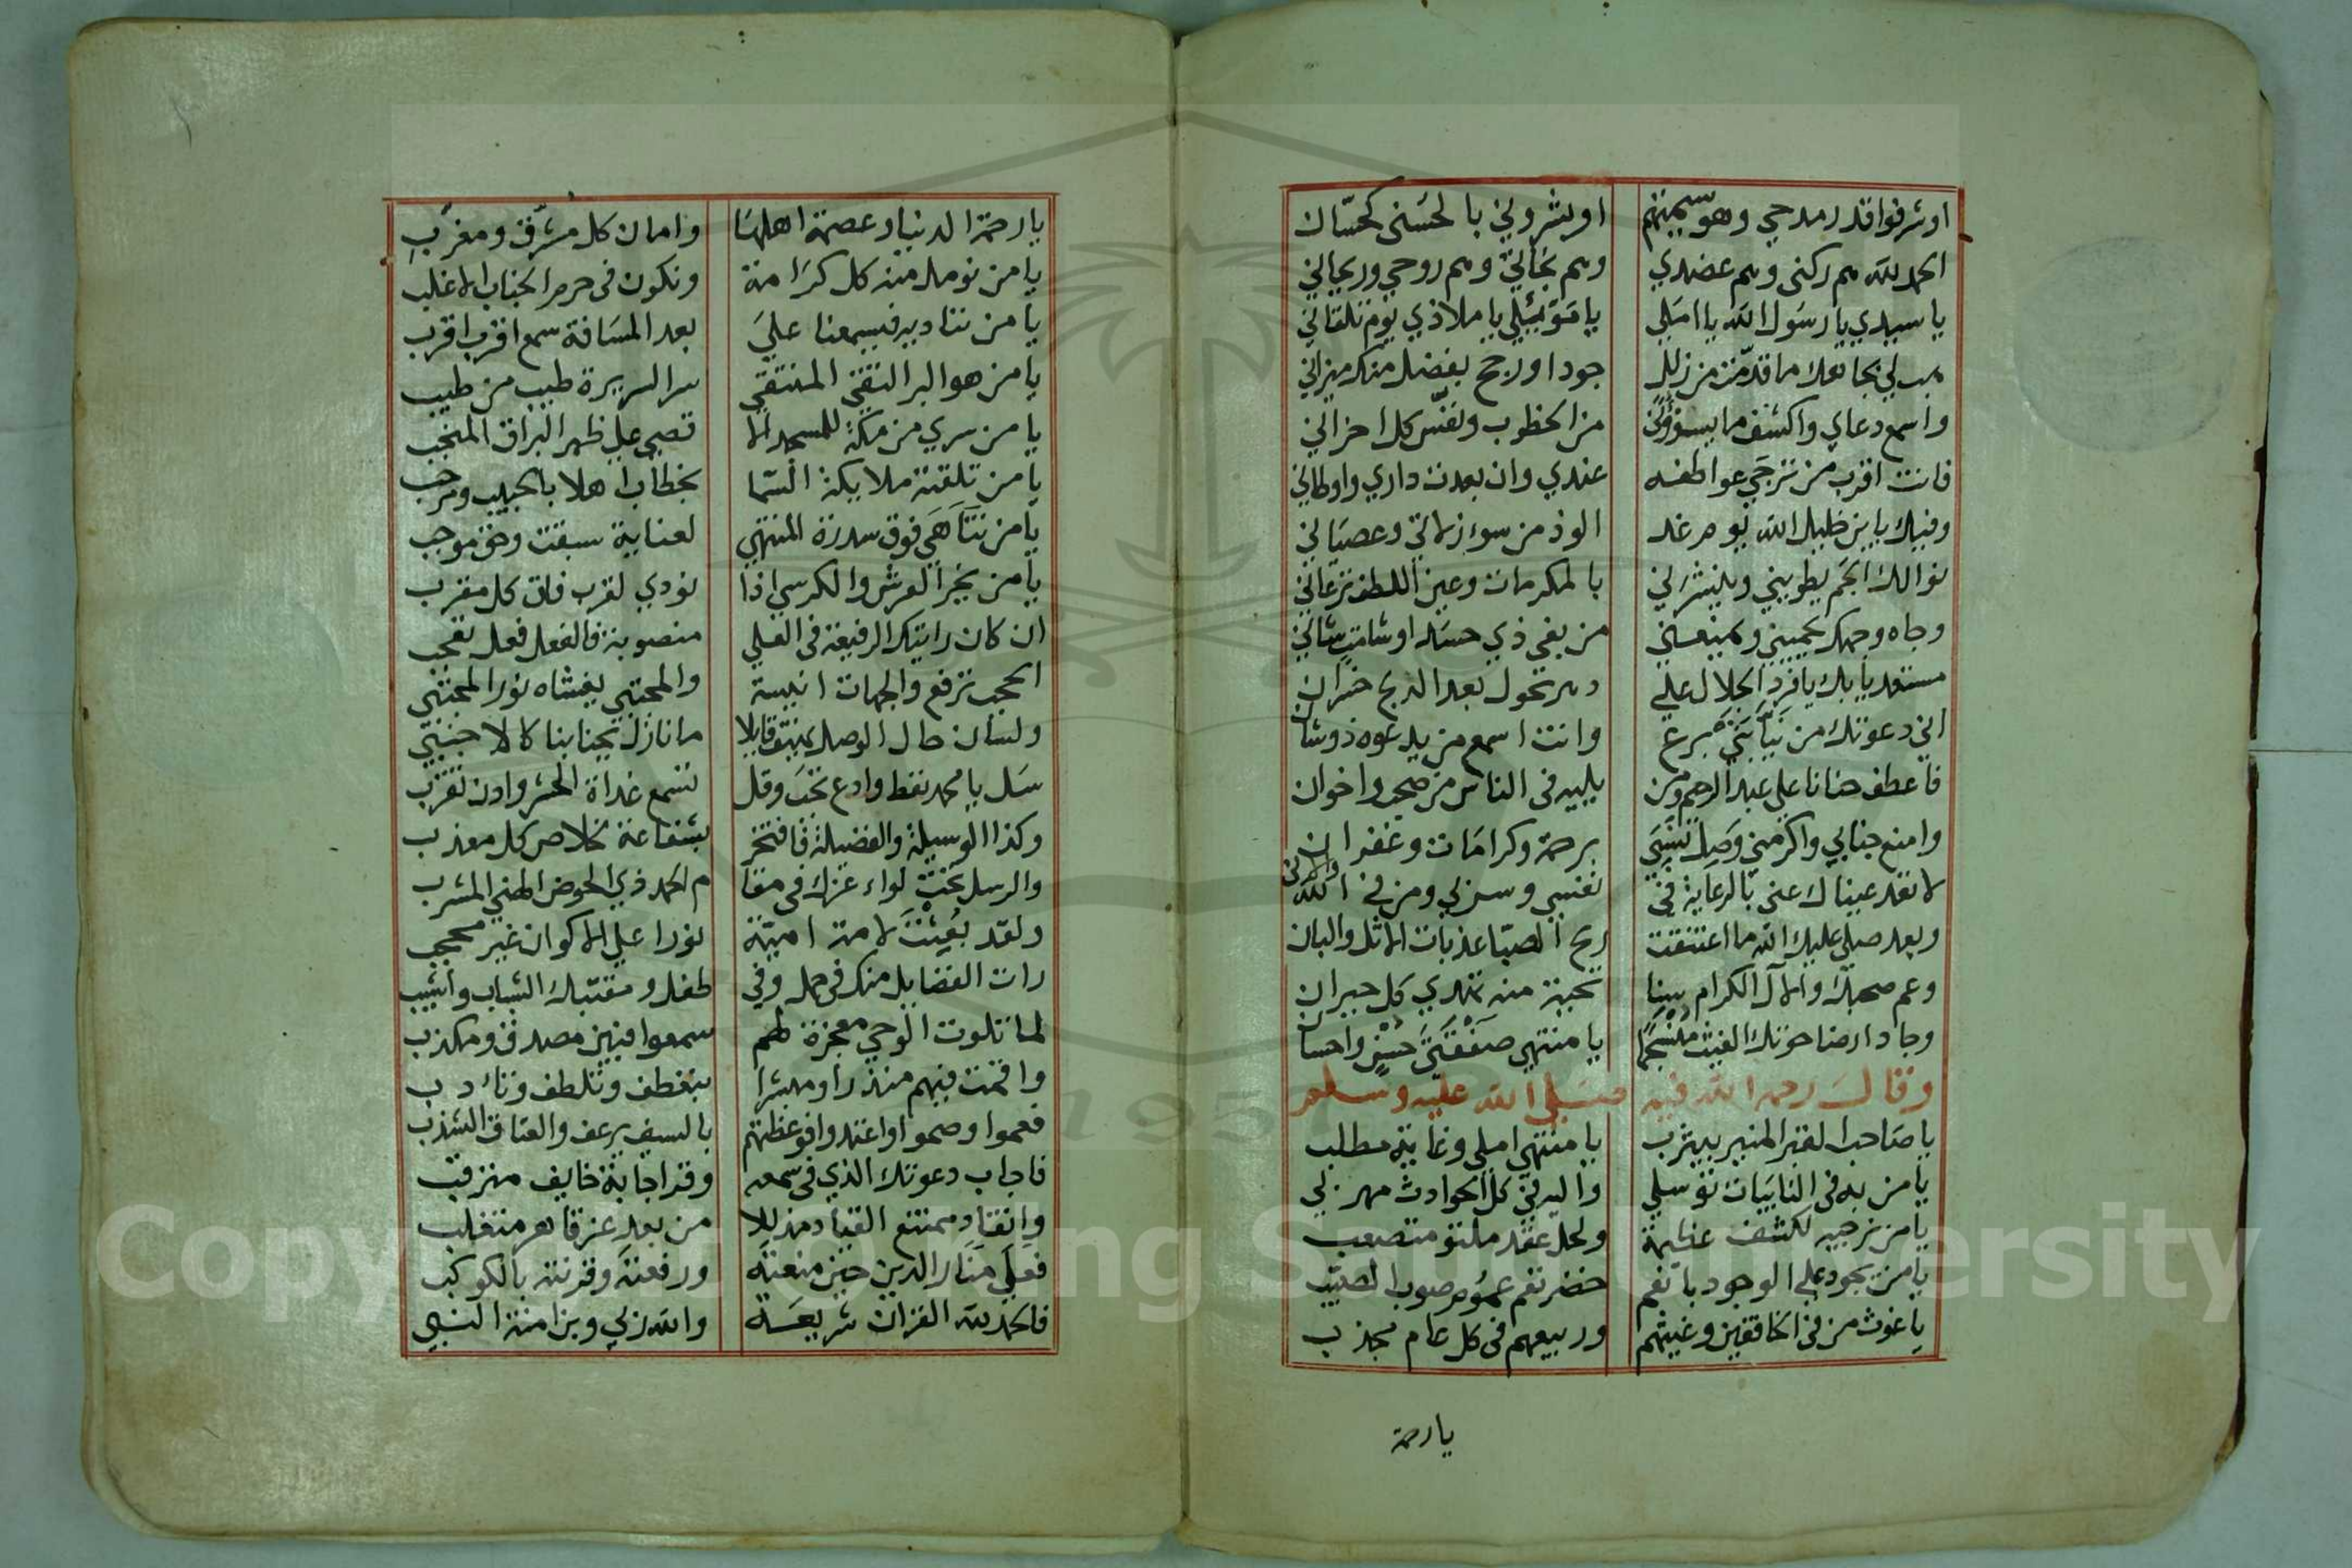 او شرفوا قدر مدحي وهو سميتهم او بشروني بالحسنى كحسان
الحمد لله هم ركني وهم عضدي وهم نجاتي وهم روحي وريحاني
يا سيدي يا رسول الله يا املي يا موئلي يا ملاذي يوم تلقاني
هب لي بجاهك ما قدمت من زلل جودا ورجح بفضل منك ميزاني
واسمع دعاي واكشف ما يسؤوني من الخطوب ونفس كل احزاني
فانت اقرب من ترجى عواطفه عندي وان بعدت داري واوطاني
وفيك يا ابن خليل الله يوم غد الوذ من سوء زلاتي وعصياني
نوالك الجم يطويني وينشرني بالمكرمات وعين اللطف ترعاني
وجاه وجهك يحميني ويمنعني من بغي ذي حسد او شامت شاني
مستعد يا بك يا فرد الجلال علي
اني دعوتك من نيابتي برع وانت اسمع من يدعوه ذو شا
فاعطف حنانا على عبد الرحيم ومن يليه في الناس من صحب واخوان
وامنع جنابي واكرمني وصل نسبي برحمة وكرامات وغفران
لا تعد عيناك عني بالرعاية في نفسي وسربي ومن في الله والاني
وبعد صلى عليك الله ما اعتنقت ريح الصبا عذبات الاثل والبان
وعم صحبك والآل الكرام سنا تحية منه تهدي كل حيران
وجاد ارضا حوتك الغيث منسجما يا منتهى صفقتي حسن واحسا
وقال رحمه الله فيه صلى الله عليه وسلم
يا صاحب القبر المنير بيثرب يا منتهى املي وغاية مطلب
يا من به في النايبات توسلي واليه في كل الحوادث مهربي
يا من نرجيه لكشف عظيمة ولحل عقد ملتو متصعب
يا من يجود على الوجود بانعم خضر تعم عموم صوب الصيب
يا غوث من في الخافقين وغيثهم وربيعهم في كل عام مجذب
يا رحمة
يا رحمة الدنيا وعصمة اهلها وامان كل مشرق ومغرب
يا من نومل منه كل كرامة ونكون في حرم الجناب الاغلب
يا من نناديه فيسمعنا على بعد المسافة سمع اقرب اقرب
يا من هو البر التقي المنتقي سر السريرة طيب من طيب
يا من سري من مكة للمسجد الا قصى على ظهر البراق المنجب
يا من تلقته ملايكة السما بخطاب اهلا بالحبيب ومرحب
يا من تناهى فوق سدرة المنتهى لعناية سبقت وحق موجب
يا من يخبر العرش والكرسي اذا نودي لقرب فاق كل مقرب
ان كان رايتك الرفيعة في العلي منصوبة فالفعل فعل تعجب
الحجب ترفع والجهات انيسة والمجتبي يغشاه نور المجتبي
ولسان حال الوصل يهتف قايلا ما نازل بجنابنا كالاجنبي
سل يا محمد تعط وادع تجب وقل تسمع غداة الحشر وادن تقرب
وكذا الوسيلة والفضيلة فافتخر بشفاعة لخلاص كل معذب
والرسل تحت لواء عزك في مقا م الحمد ذي الحوض الهني المشرب
ولقد بعثت لامة امية نورا على الاكوان غير محجب
رات الفضايل منك في حمل وفي طفل ومقتبل الشباب واشيب
لما تلوت الوحي معجزة لهم سمعوا فبين مصدق ومكذب
واقمت فيهم منذرا ومبشرا بتعطف وتلطف وتادب
فعموا وصموا واعتدوا فوعظتهم بالسيف يرعف والعتاق الشذب
فاجاب دعوتك الذي في سمعه وقر اجابة خايف مترقب
وانقاد ممتنع القياد مذللا من بعد عز قاهر متغلب
فعلى منار الدين حين منعته ورفعته وقرنته بالكوكب
فالحمد لله القران شريعة والله ربي وبن امنة النبي